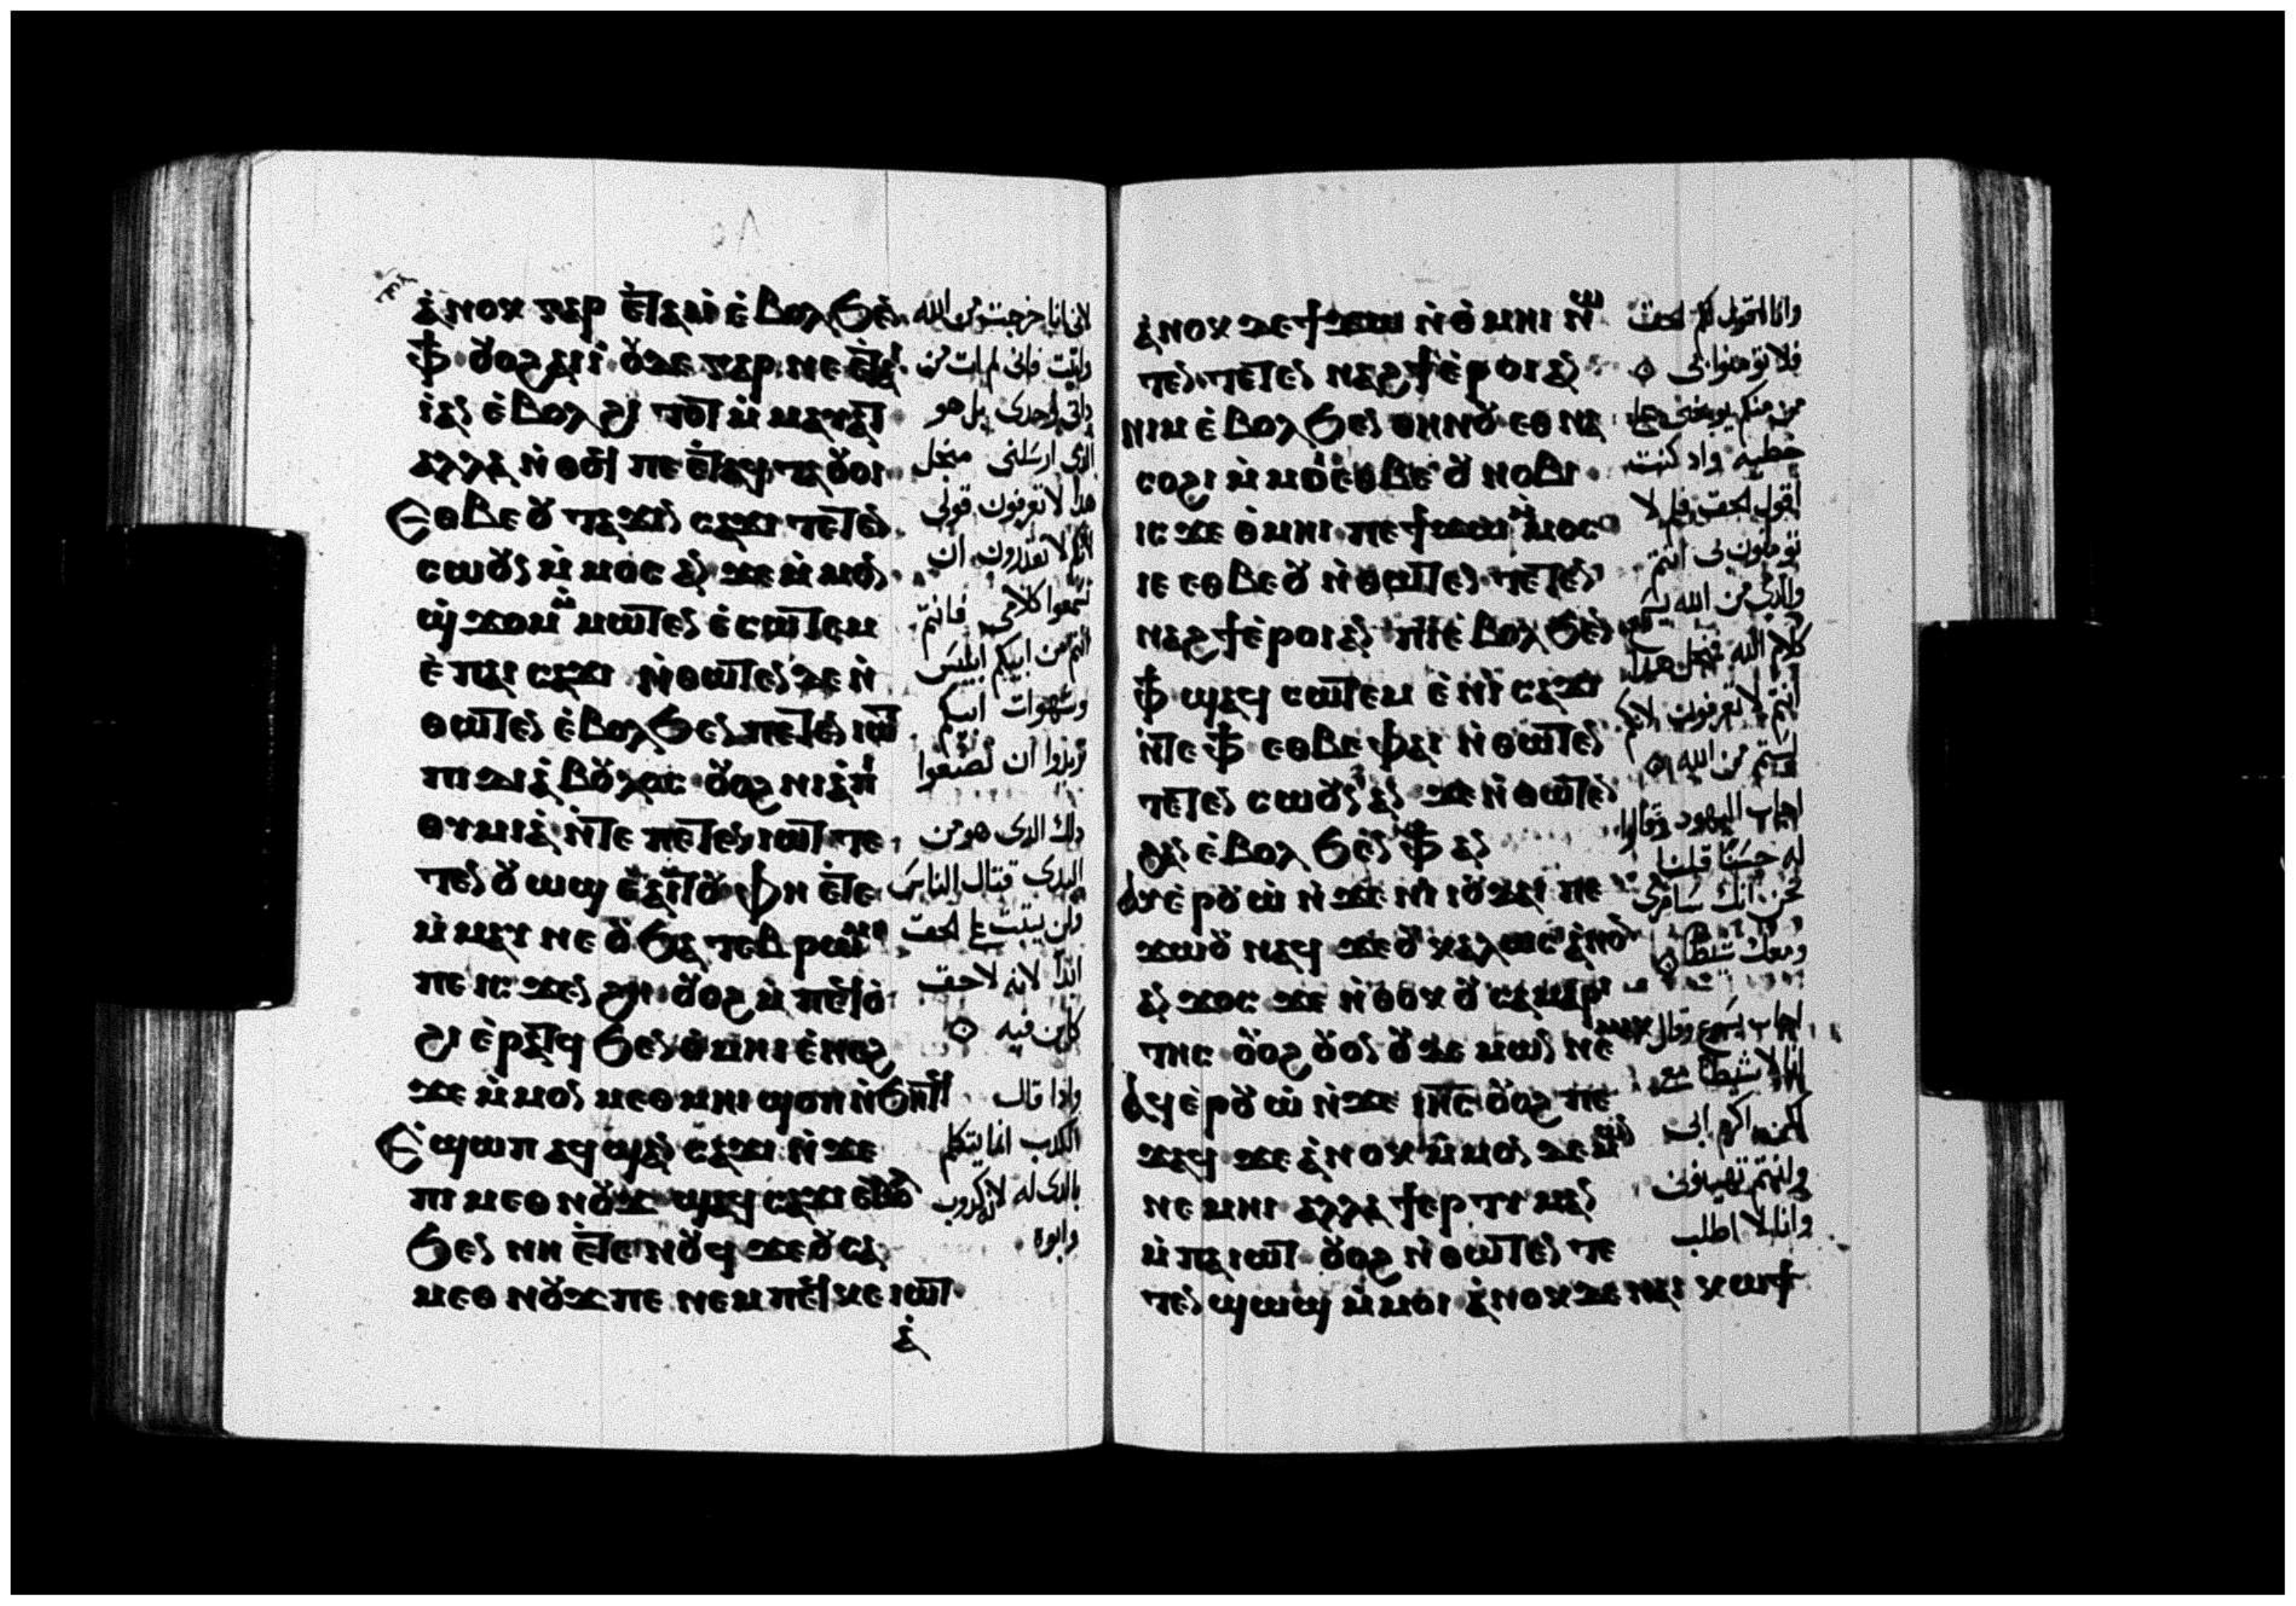 ⲁⲛⲟⲕ ⲅⲁⲣ ⲉⲧⲁⲓⲓ ⲉⲃⲟⲗϧⲉⲛ
ⲫϯ ⲟⲩⲟϩ ⲁⲓⲓ ⲟⲩⲇⲉ ⲅⲁⲣ ⲛⲉ ⲉⲧⲁⲓ
ⲓⲁⲛ ⲉⲃⲟⲗ ϩⲓ ⲧⲟⲧ ⲙⲙⲁⲩⲁⲧ
ⲁⲗⲗⲁ ⲛⲑⲟϥ ⲡⲉ ⲉⲧⲁϥⲧⲁⲟⲩⲟⲓ
ⲉⲑⲃⲉⲟⲩ ⲧⲁϫⲓⲛ ⲥⲁϫⲓ ⲧⲉⲧⲉⲛ
ⲥⲱⲟⲩⲛ ⲙⲙⲟⲥ ⲁⲛ ϫⲉ ⲙⲙⲟⲛ
ϣϫⲟⲙ ⲙⲙⲱⲧⲉⲛ ⲉⲥⲱⲧⲉⲙ
ⲉⲡⲁⲓ ⲥⲁϫⲓ ⲛⲑⲱⲧⲉⲛ ϫⲉ ⲛ
ⲑⲱⲧⲉⲛ ⲉⲃⲟⲗϧⲉⲛ ⲡⲉⲧⲉⲛ ⲓⲱⲧ
ⲡⲓ ⲇⲓⲁⲃⲟⲩⲗⲟⲥ ⲟⲩⲟϩ ⲛⲓⲉⲡⲓ
ⲑⲩⲙⲓⲁ ⲛⲧⲉ ⲡⲉⲧⲉⲛ ⲓⲱⲧ ⲧⲉ
ⲧⲉⲛ ⲟⲩⲱϣ ⲉⲁⲓⲧⲟⲩ ⲫⲏ ⲉⲧⲉ
ⲙⲙⲁⲩ ⲛⲉ ⲟⲩϧⲁ ⲧⲉⲃ ⲣⲱⲙⲓ
ⲡⲉ ⲓⲥϫⲉⲛ ϩⲏ ⲟⲩⲟϩ ⲙⲡⲉϥⲟ
ϩⲓ ⲉⲣⲁⲧϥ ϧⲉⲛ ⲑⲙⲏⲓ ⲉⲛⲉϩ
ϫⲉ ⲙⲙⲟⲛ ⲙⲉⲑⲙⲏⲓ ϣⲟⲡ ⲛϧⲏⲧϥ
ⲉϣⲱⲡ ⲁϥϣⲁⲛ ⲥⲁϫⲓ ⲛϫⲉ
ⲡⲓ ⲙⲉⲑⲛⲟⲩϫ ϣⲁϥ ⲥⲁϫⲓ ⲉⲃⲟⲗ
ϧⲉⲛ ⲛⲏ ⲉⲧⲉ ⲛⲟⲩϥ ϫⲉ ⲟⲩⲥⲁ
ⲙⲉⲑⲛⲟⲩϫ ⲡⲉ ⲛⲉⲙ ⲡⲉϥ ⲕⲉ ⲓⲱⲧ
ⲁ
لانى انا خرجت من الله
واتيت فانى لم ات من
ذاتى وحدى بل هو
الذى ارسلنى من اجل
هذا لا تعرفون قولى
لانكم لا تقدرون ان
تسمعوا كلامى فانتم
انتم من ابيكم ابليس
وشهوات ابيكم
تريدوا ان تصنعوا
ذلك الذى هو من
البدى قتال الناس
ولن يثبت على الحق
ابدا لانه لا حق
كاين فيه
واذا قال
الكذب انما يتكلم
بالذى له لانه كذوب
وابوه
ⲁⲛⲟⲕ ⲇⲉ ϯϫⲱ ⲛⲟⲙⲏⲓ ⲛⲱ
ⲧⲉⲛ ⲧⲉⲧⲉⲛ ⲛⲁϩϯ ⲉⲣⲟⲓ ⲁⲛ
ⲛⲓⲙ ⲉⲃⲟⲗϧⲉⲛ ⲑⲏⲛⲟⲩ ⲉⲑⲛⲁ
ⲥⲟϩⲓ ⲙⲙⲟⲓ ⲉⲑⲃⲉ ⲟⲩ ⲛⲟⲃⲓ
ⲓⲥϫⲉ ⲑⲙⲏⲓ ⲡⲉ ϯϫⲱ ⲙⲙⲟⲥ
ⲓⲉ ⲉⲑⲃⲉⲟⲩ ⲛⲑⲱⲧⲉⲛ ⲧⲉⲧⲉⲛ
ⲛⲁϩϯ ⲉⲣⲟⲓ ⲁⲛ ⲡⲓⲉⲃⲟⲗϧⲉⲛ
ⲫϯ ϣⲁϥ ⲥⲱⲧⲉⲙ ⲉⲛⲓ ⲥⲁϫⲓ
ⲛⲧⲉ ⲫϯ ⲉⲑⲃⲉ ⲫⲁⲓ ⲛⲑⲱⲧⲉⲛ
ⲧⲉⲧⲉⲛ ⲥⲱⲟⲩⲛ ⲁⲛ ϫⲉ ⲛⲑⲱⲧⲉⲛ
ϩⲁⲛ ⲉⲃⲟⲗϧⲉⲛ ⲫϯ ⲁⲛ
ⲁⲩⲉⲣⲟⲩⲱ ⲛϫⲉ ⲛⲓ ⲓⲟⲩⲇⲁⲓ ⲡⲉ
ϫⲱⲟⲩ ⲛⲁϥ ϫⲉ ⲟⲩ ⲕⲁⲗⲱⲥ ⲁⲛⲟⲛ
ⲁⲛ ϫⲟⲥ ϫⲉ ⲛⲑⲟⲕ ⲟⲩ ⲥⲁⲙⲁⲣⲓ
ⲧⲏⲥ ⲟⲩⲟϩ ⲟⲩⲟⲛ ⲟⲩ ⲇⲉⲙⲱⲛ ⲛⲉⲙⲁⲕ
ⲁϥⲉⲣⲟⲩⲱ ⲛϫⲉ ⲓⲏⲥ ⲟⲩⲟϩ ⲡⲉ
ϫⲁϥ ϫⲉ ⲁⲛⲟⲕ ⲙⲙⲟⲛ ⲇⲉⲙⲱⲛ
ⲛⲉⲙⲏⲓ ⲁⲗⲗⲁ ϯⲉⲣ ⲧⲓⲙⲁⲛ
ⲙⲡⲁⲓⲱⲧ ⲟⲩⲟϩ ⲛⲑⲱⲧⲉⲛ ⲧⲉ
ⲧⲉⲛ ϣⲱϣ ⲙⲙⲟⲓ ⲁⲛⲟⲕ ⲇⲉ ⲛⲁⲓ ⲕⲱϯ
وانا اقول لكم الحق
فلا تومنوا بى
من منكم يوبخنى على
خطيه واذ كنت
اقول الحق فلم لا
تومنون بى انتم
والذى من الله يسمع
كلام الله من اجل هذا
انتم لا تعرفون لانكم
لستم من الله
اجاب اليهود وقالوا
له حسنا قلنا
نحن انك سامرى
ومعك شيطان
اجاب يسوع وقال
انا لا شيطان معى
لكن اكرم ابى
وانتم تهينونى
وانا لا اطلب